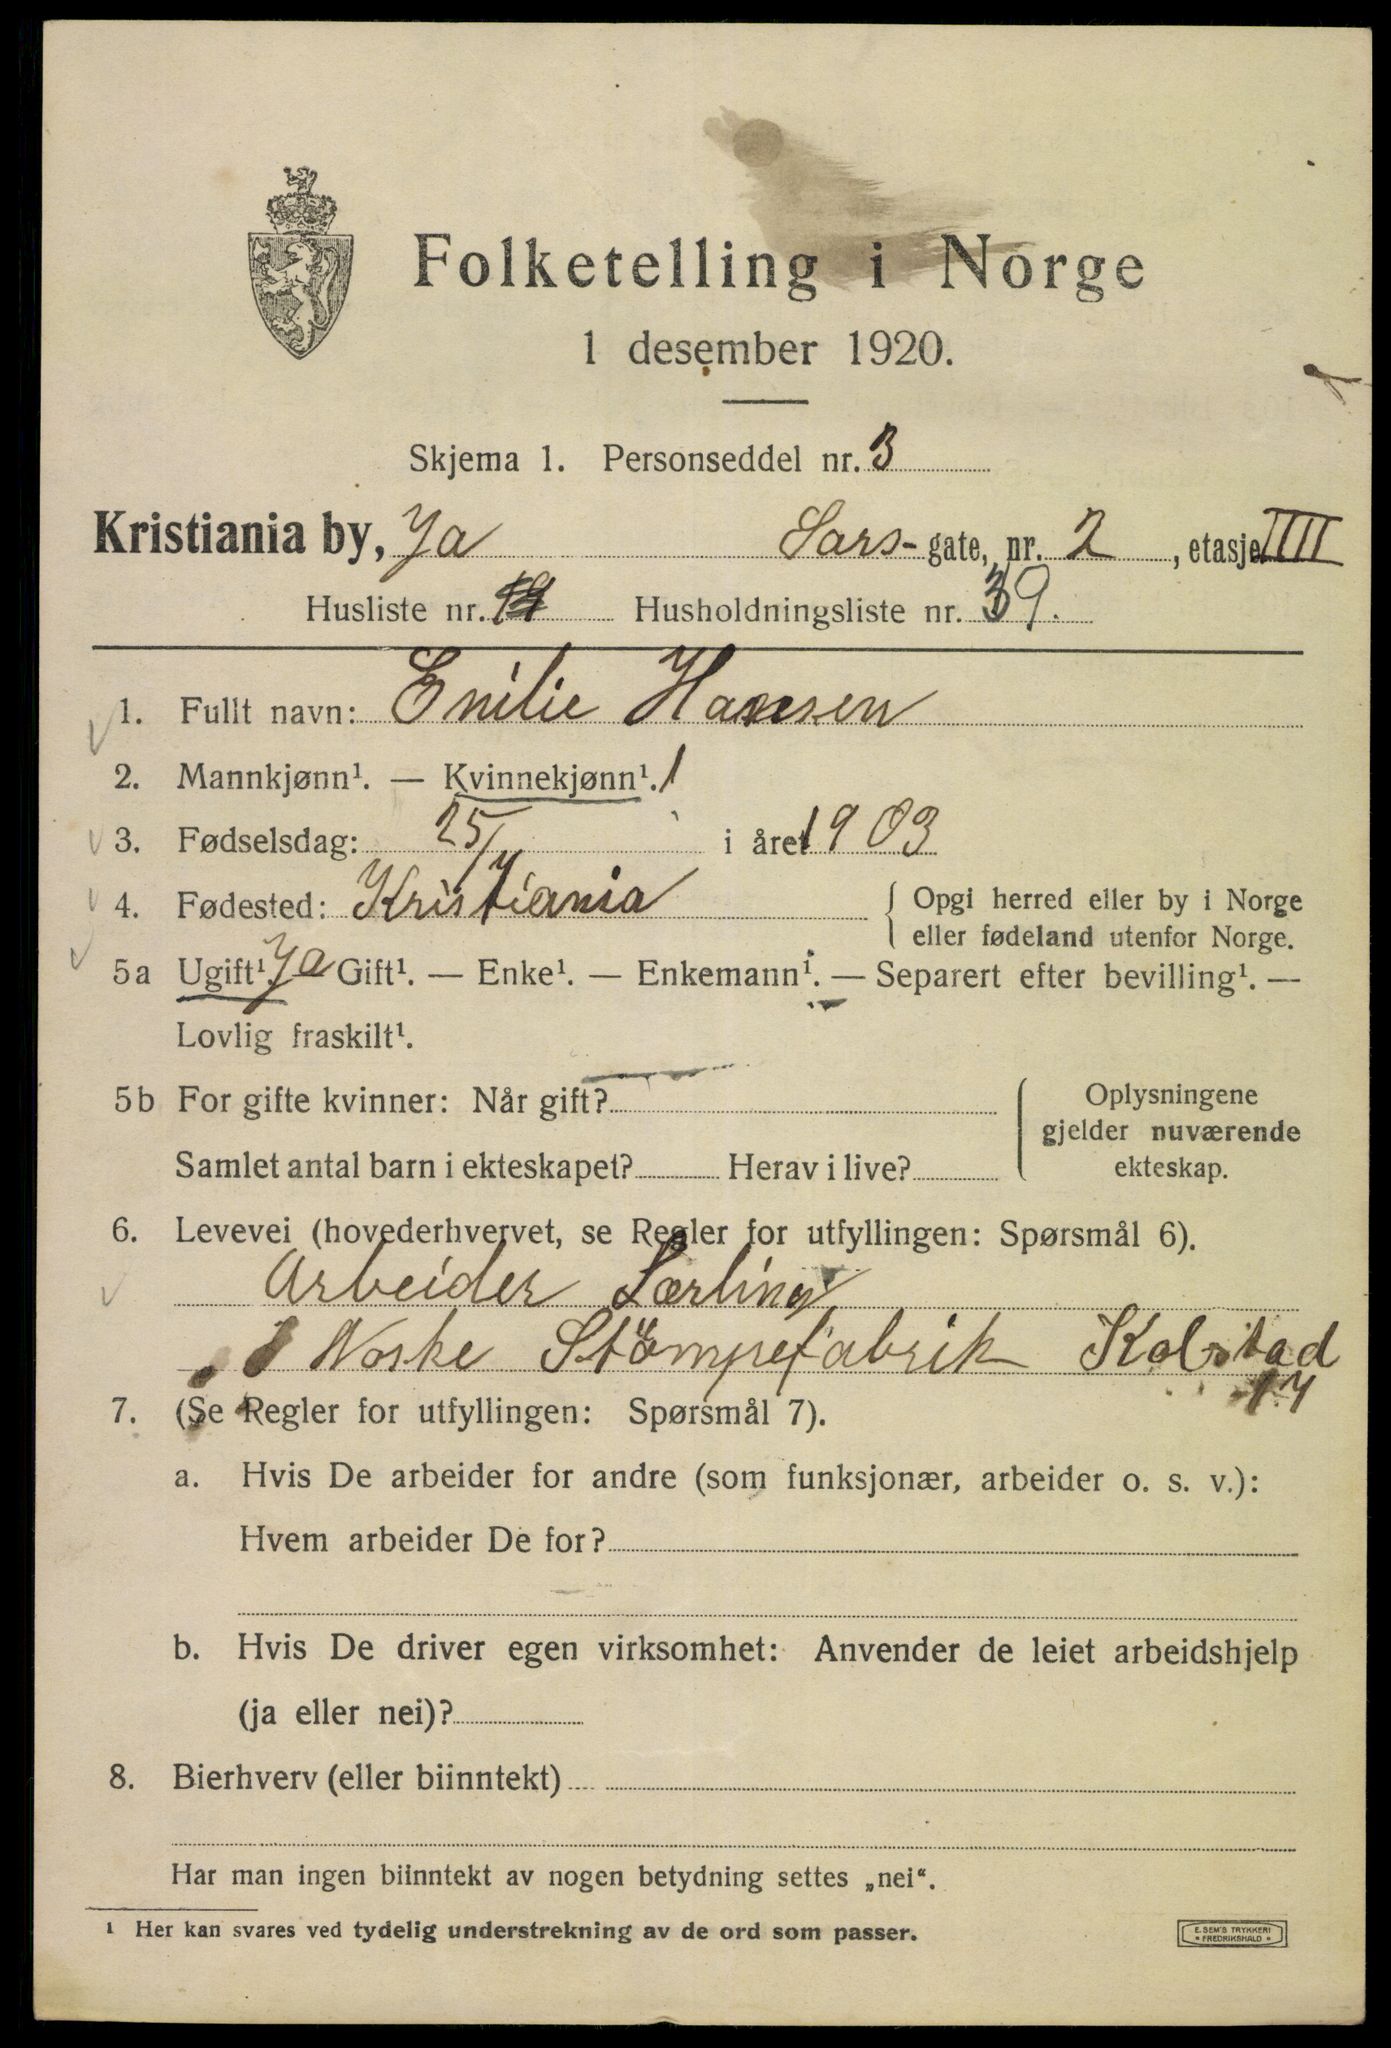 Folketelling i Norge
1 desember 1920.
Skjema 1. Personseddel nr. 3
Kristiania by, Ja Sars-gate, nr. 2, etasje IIII
Husliste nr. Husholdningsliste nr. 39.
1. Fullt navn: Emilie Hansen
2. Mannkjønn¹. — Kvinnekjønn¹. 1
3. Fødselsdag: 25/7 i året 1903
4. Fødested: Kristiania { Opgi herred eller by i Norge
eller fødeland utenfor Norge.
5a Ugift¹. Ja Gift¹. — Enke¹. — Enkemann¹. — Separert efter bevilling¹. —
Lovlig fraskilt¹.
5b For gifte kvinner: Når gift? { Oplysningene
gjelder nuværende
Samlet antal barn i ekteskapet? Herav i live? ekteskap.
6. Levevei (hovederhvervet, se Regler for utfyllingen: Spørsmål 6).
Arbeider Lærling
i Norske Stömpefabrik Kolstad
17
7. (Se Regler for utfyllingen: Spørsmål 7).
a. Hvis De arbeider for andre (som funksjonær, arbeider o. s. v.):
Hvem arbeider De for?
b. Hvis De driver egen virksomhet: Anvender de leiet arbeidshjelp
(ja eller nei)?
8. Bierhverv (eller biinntekt)
Har man ingen biinntekt av nogen betydning settes „nei“.
¹ Her kan svares ved tydelig understrekning av de ord som passer.
E. SEM'S TRYKKERI
FREDRIKSHALD